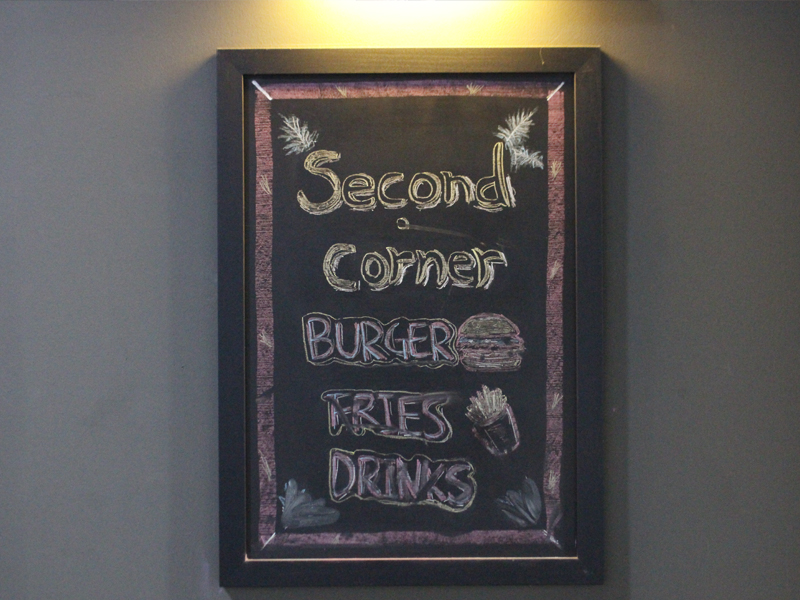 Second
Corner
BURGER
FRIES
DRINKS